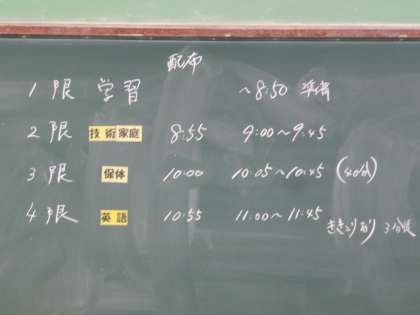 配布
1限 学習 ~8:50 準備
2限 技術家庭 8:55 9:00~9:45
3限 保体 10:00 10:05~10:45 (40分)
4限 英語 10:55 11:00~11:45
ききとりあり 3分後